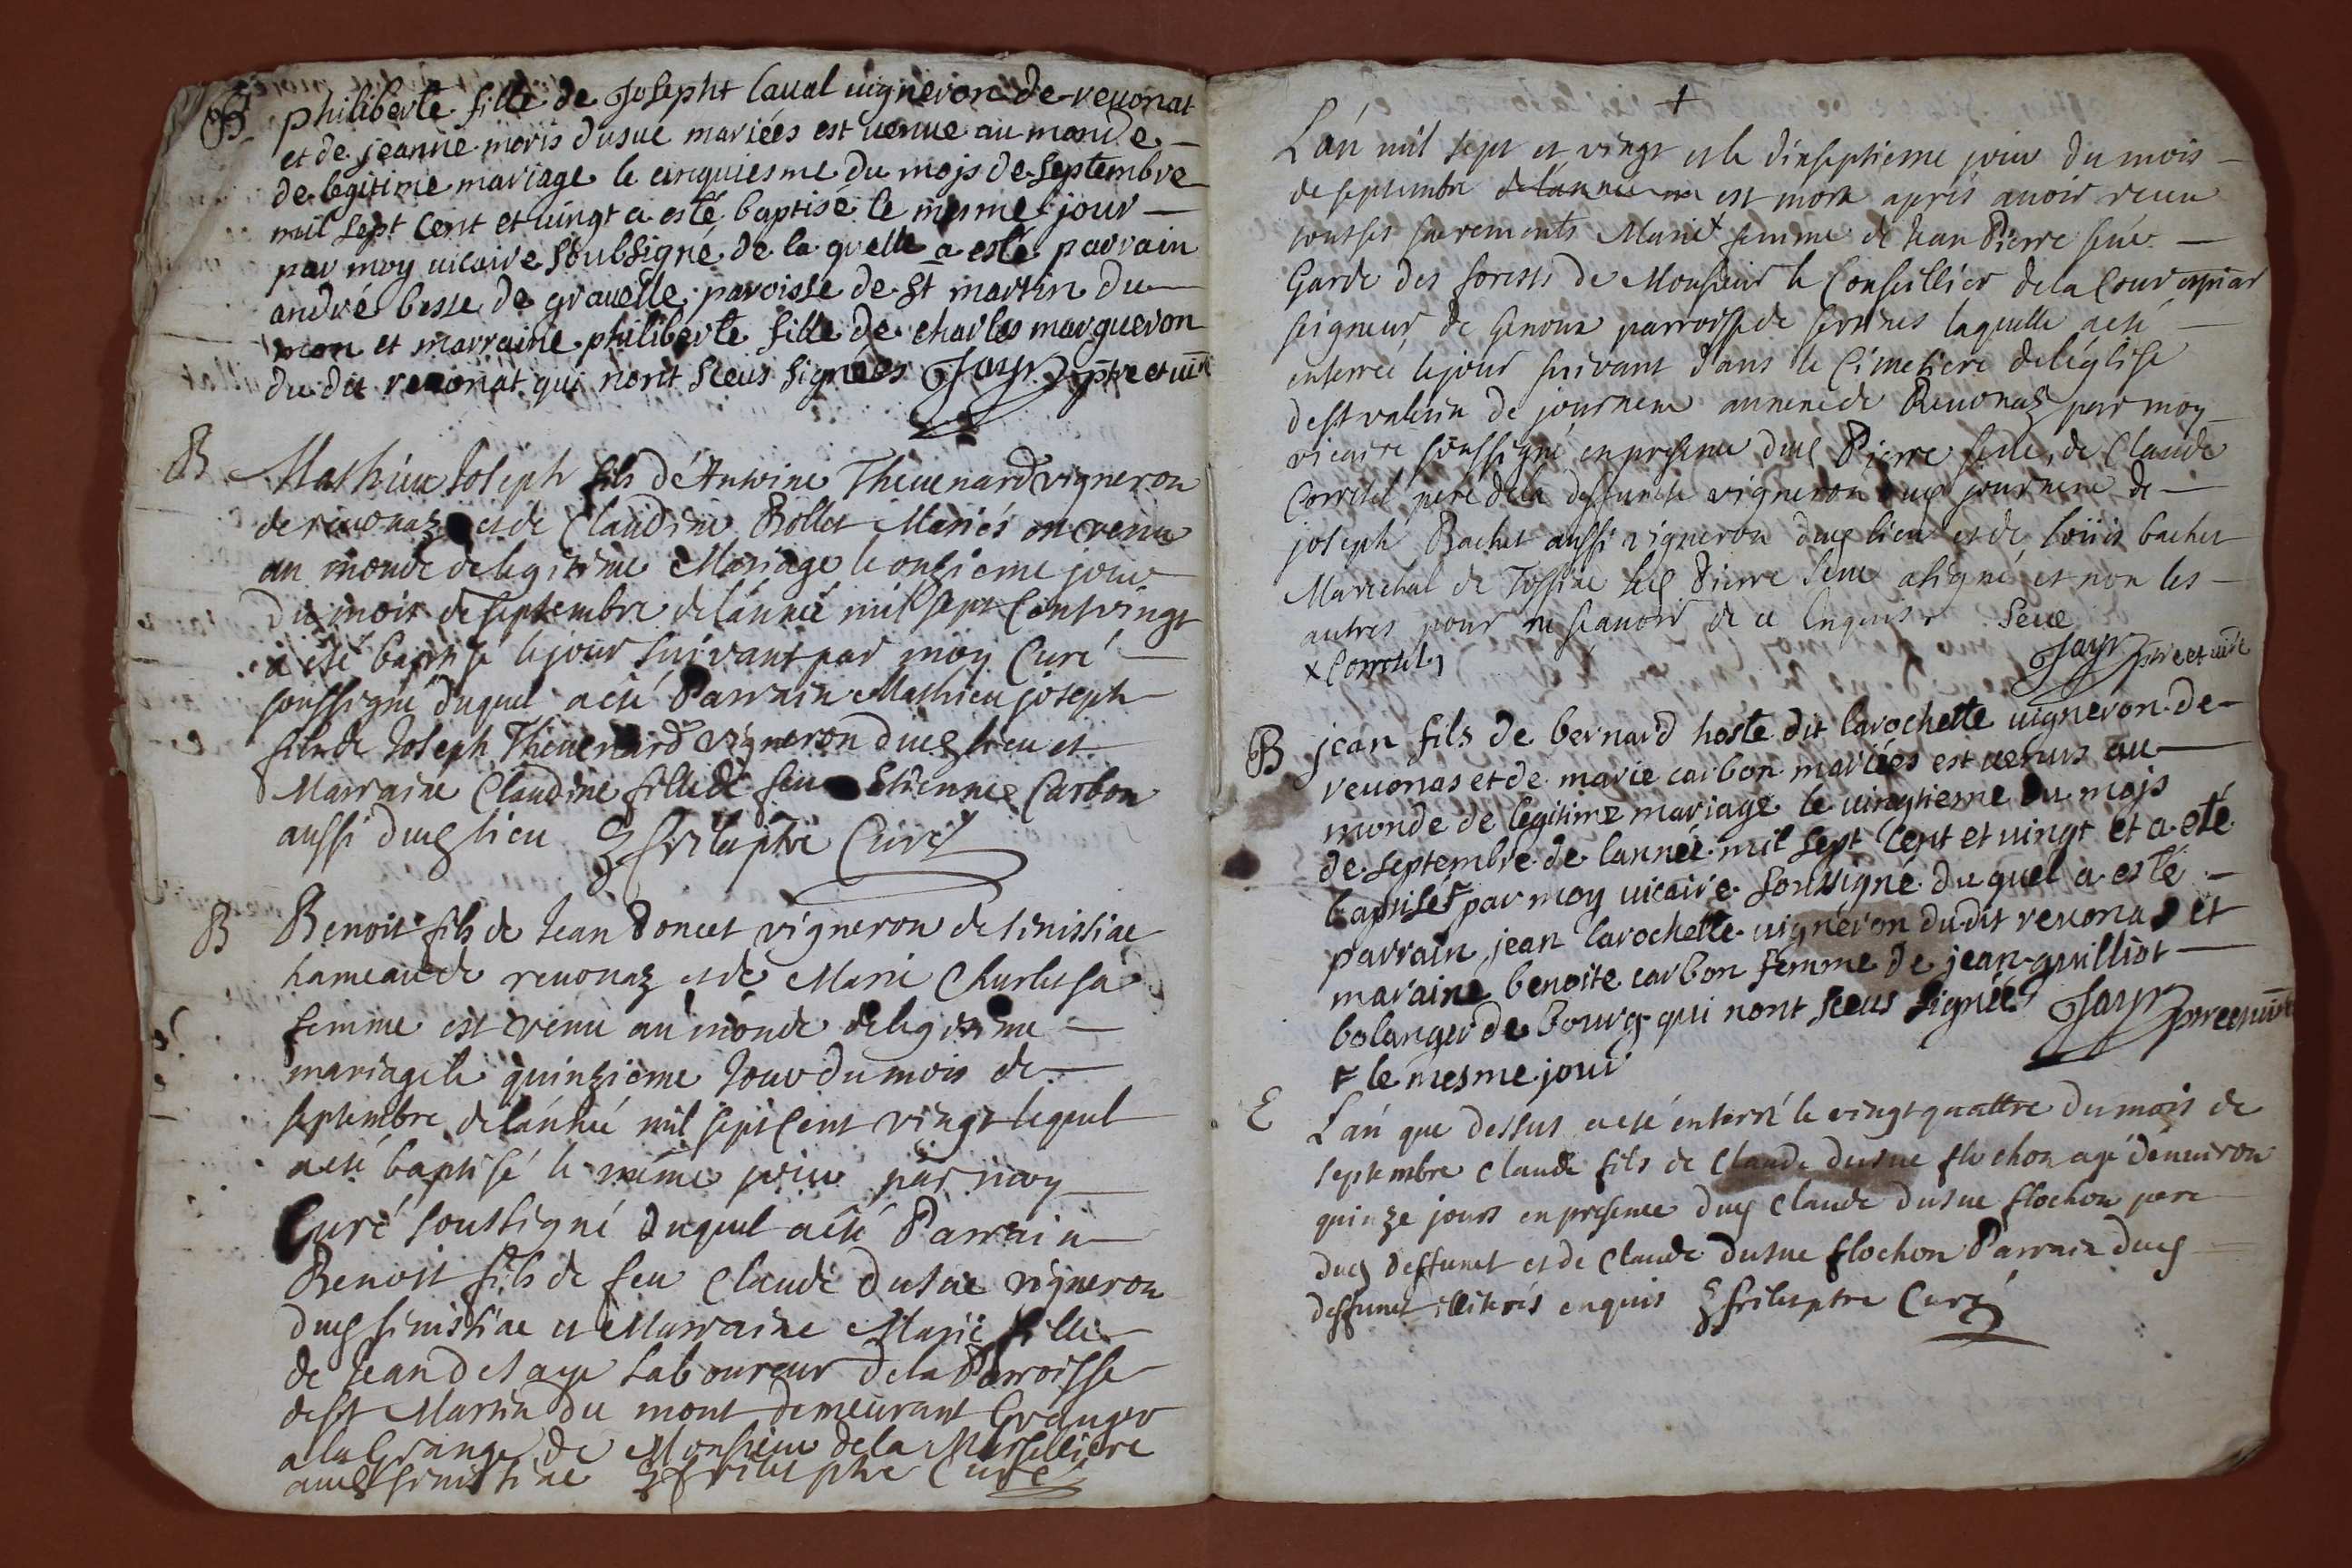 B philiberte fille de Josepht laual uigneron de reuonat
et de jeanne moris dusue mariées est uenue au monde
de legitime mariage le cinquiesme du mojs de septembre
mil sept cent et uingt a esté baptisé le mesme jour
par moy uicaire soubsigné de la quelle a esté parrain
andré besse de grauelle paroisse de st martin du
mon et marraine philiberte fille de charles margueron
du dit reuonat qui nont sceus signées Jayr ptre et uire
B Mathieu Joseph fils d'Antoine Theuenard vigneron
de reuonaz et de Claudine Bollet Mariés est venu
au monde de legitime Mariage le onzieme jour
du mois de septembre de lánnée mil sept Cent vingt
a eté baptisé le jour suivant par moy Curé
soussigné duquel a eté Parrain Mathieu joseph
fils de Joseph Theuenard vigneron dud lieu et
Marraine Claudine fille de feu Etienne Carbon
aussi dud lieu ptre Curé
B Benoit fils de Jean Doncet vigneron de senissiac
hameau de reuonaz et de Marie Charlet sa
femme est venu au monde de legitime
mariage le quinzieme Jour du mois de
septembre de lánnée mil sept Cent vingt lequel
a eté baptisé le même jour par moy
Curé soussigné duquel a eté Parrain
Benoit fils de feu Claude dusue vigneron
dud sinissiac et Marraine Marie fille
de Jean Laboureur de la Parroisse
de st Martin du mont demeurant Granger
a la Grange de Monsieur de la
aud sinissiac ptre Curé
+
L'án mil sept et vingt et le dixseptieme jour du mois
de septembre de lannée est morte aprés auoir receu
tout ses sacrements Marie x femme de Jean Pierre seue
Garde des forests de Monsieur le Conseillier de la Cour
seigneur de Genoux parroisse de laquelle a eté
enterrée le jour suivant dans le Cimetiere de léglise
de st valerin de journens annexe de Reuonaz par moy
vicaire soussigné en presence dud Pierre seue, de Claude
Corretel pere de la deffuncte vigneron dud journens de
joseph Bachet aussi vigneron dud lieu et de loüis bachet
Marechal de Tossiat led Pierre Seue a signé et non les
autres pour ne sçauoir de ce Enquis. Seue
x Corretel Jayr ptre et uire
B jean fils de bernard hoste dit larochette uigneron de
reuonas et de marie carbon mariées est uenus au
monde de legitime mariage le uingtieme du mojs
de septembre de lannée mil sept cent et uingt et a eté
baptiser par moy uicaire soussigné du quel a esté
parrain jean larochette uigneron dudit reuonas et
maraine benoite carbon femme de jean guilliot
bolanger de bourg qui nont sceus signée Jayr ptre et uire
le mesme jour
E L'án que dessus a eté enterré le vingt quattre du mois de
septembre Claude fils de Claude dusue flochon agé dénuiron
quinze jours en presence dud Claude dusue flochon pere
dud deffunct et de Claude dusue flochon Parrain dud
deffunct illiterés enquis ptre Curé